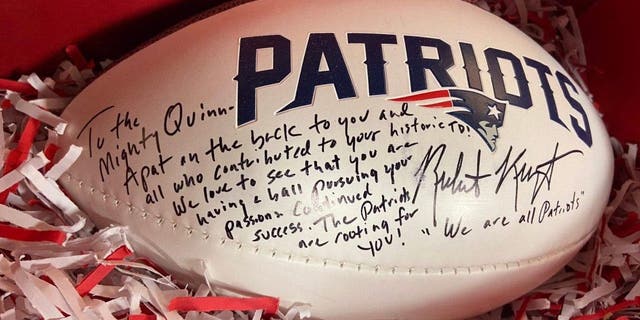 PATRIOTS
To the
Mighty Quinn-
A pat on the back to you and
all who contributed to your historic TD!
We love to see that you are
having a ball pursuing your
passion. Continued
success. The Patriots
are rooting for
you!
Robert Kraft
"We are all Patriots"